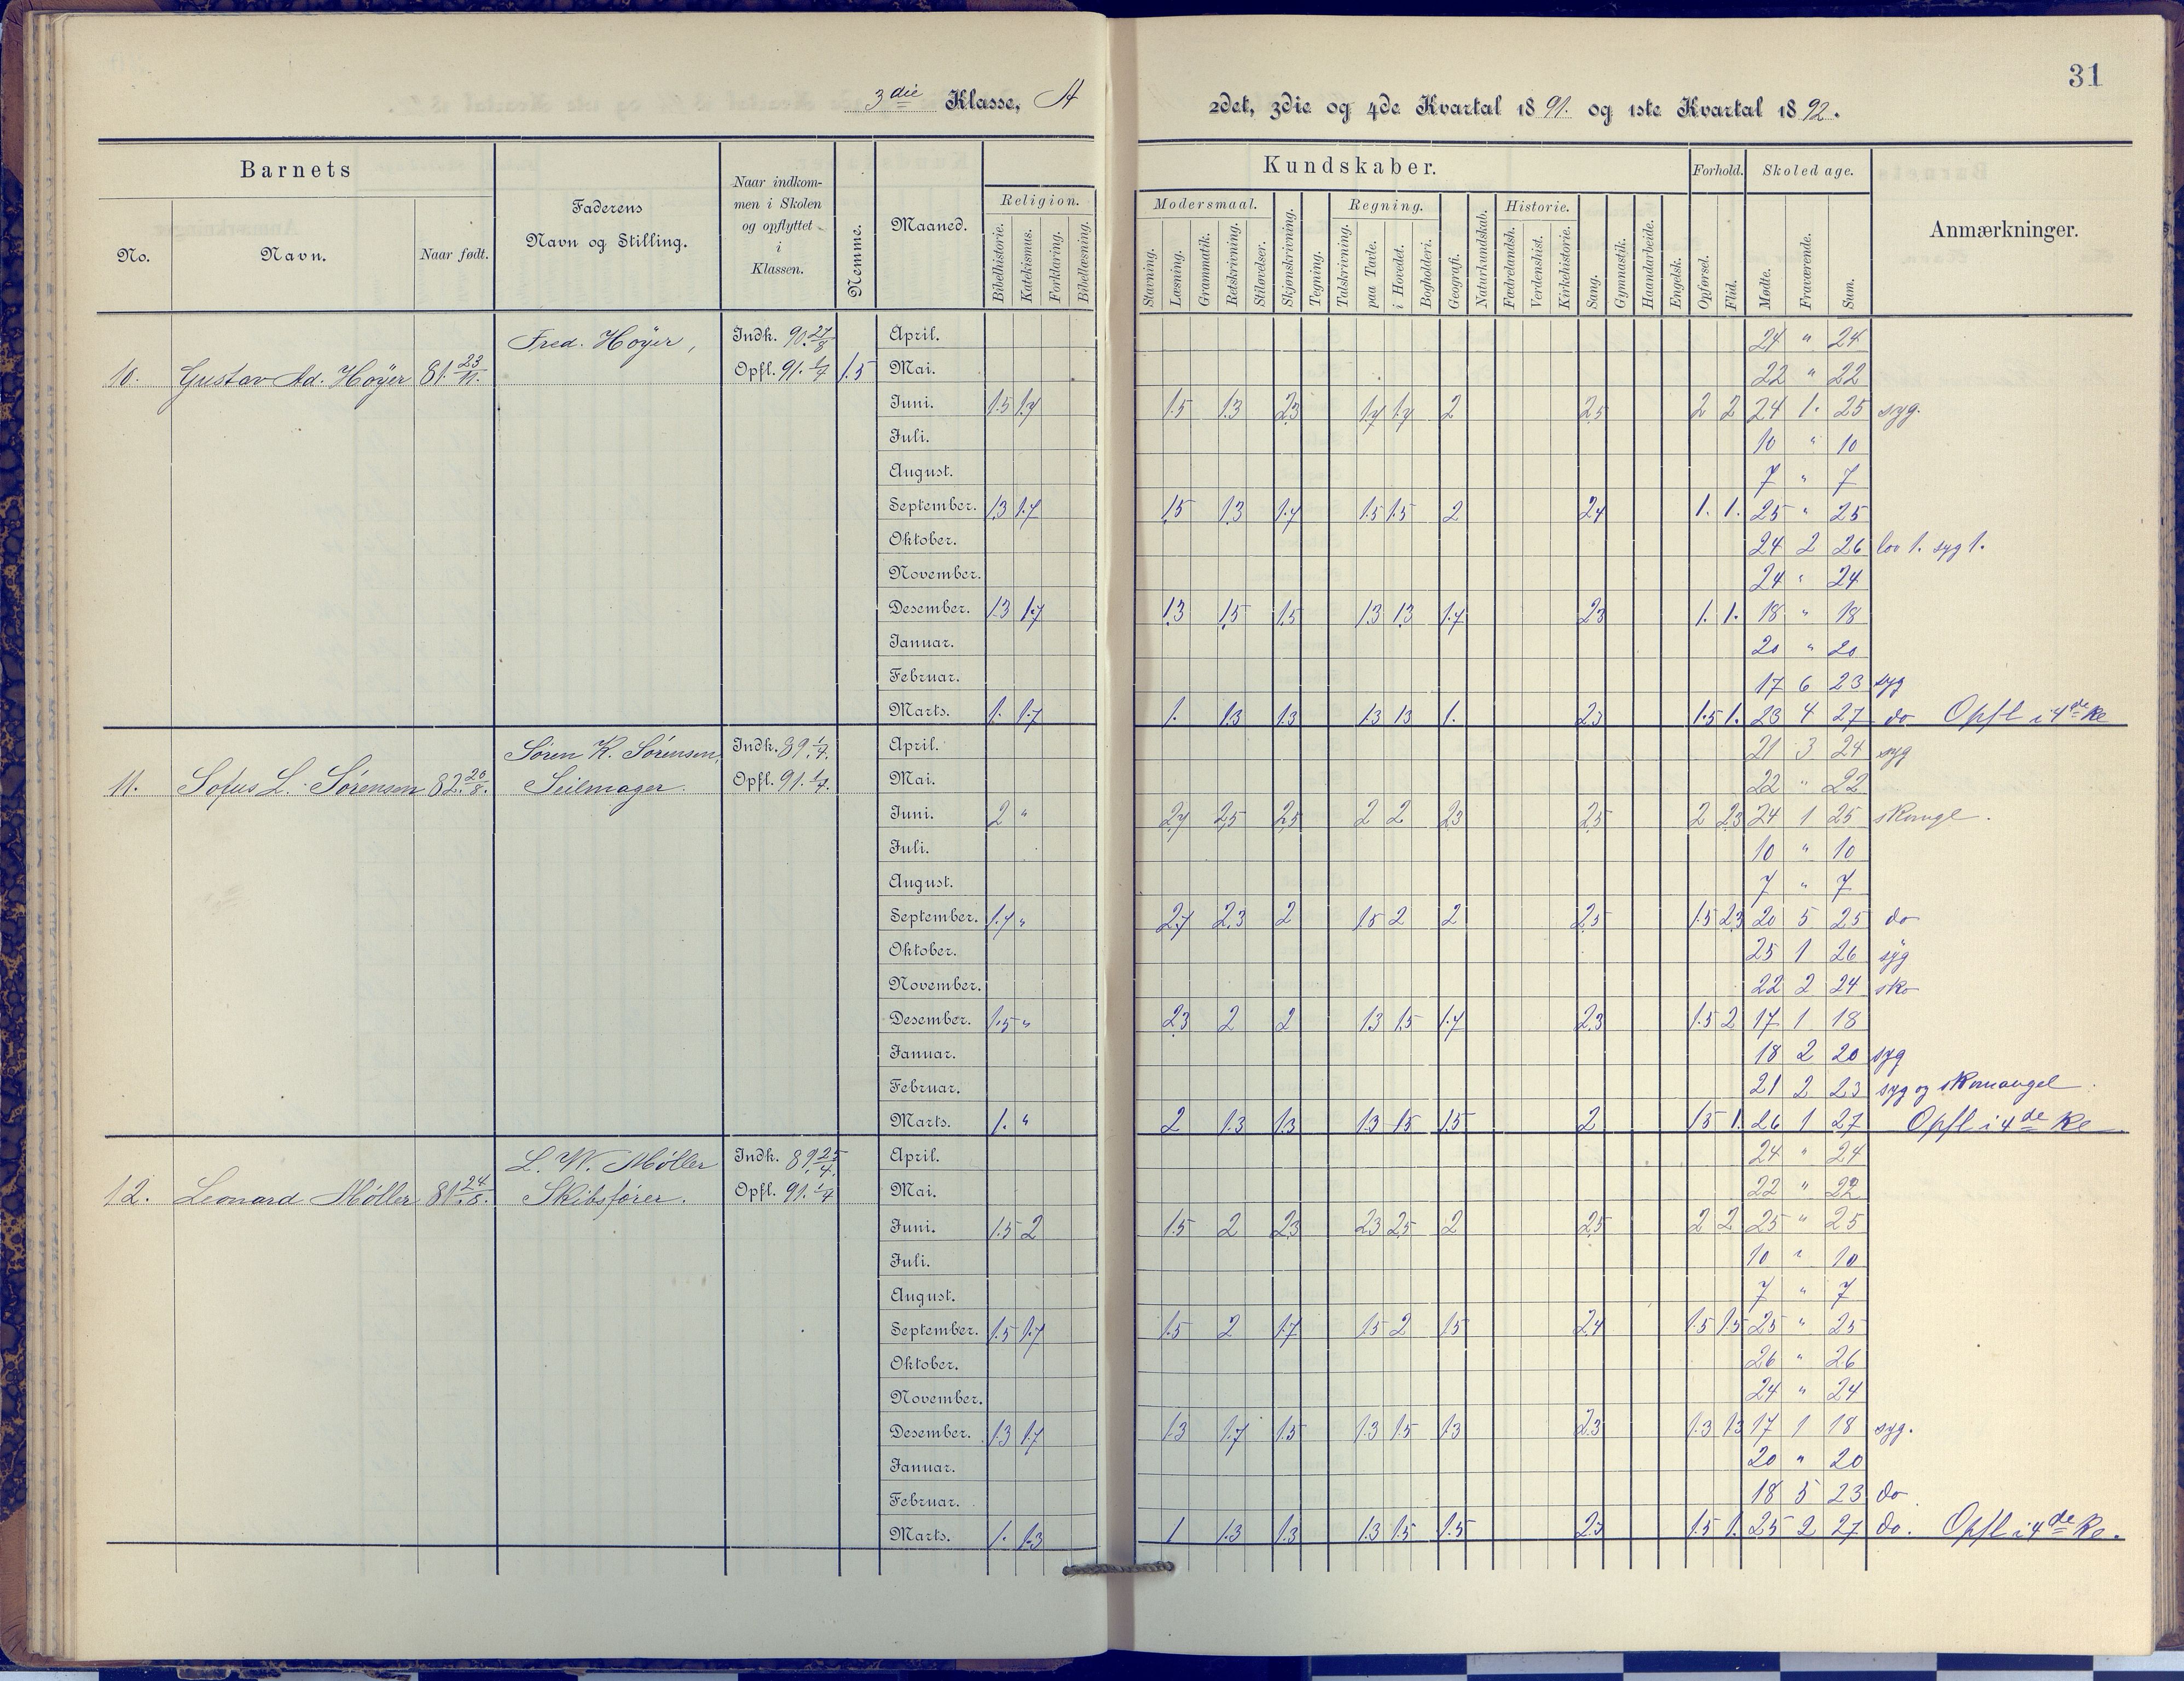 31
3die Klasse, A
2det, 3die og 4de Kvartal 1891. og 1ste Kvartal 1892.
Barnets
No.
Navn.
Naar født.
Faderens
Navn og Stilling.
Naar indkom-
men i Skolen
og opflyttet
i
Klassen.
Nemme.
Maaned.
Kundskaber.
Religion.
Bibelhistorie.
Katekismus.
Forklaring.
Bibellæsning.
Modersmaal.
Stavning.
Læsning.
Grammatik.
Retskrivning.
Stiløvelser.
Skjønskrivning.
Tegning.
Regning.
Talskrivning.
paa Tavle.
i Hovedet.
Bogholderi.
Geografi.
Naturkundskab.
Historie.
Fædrelandsh.
Verdenshist.
Kirkehistorie.
Sang.
Gymnastik.
Haandarbeide.
Engelsk.
Forhold.
Opførsel.
Flid.
Skoledage.
Mødte.
Fraværende.
Sum.
Anmærkninger.
10. Gustav Ad. Høyer 81. 23/11. Fred. Høyer, Indk. 90. 27/8 Opfl. 91. 1/4 1.5
April. 24 " 24
Mai. 22 " 22
Juni. 1.5 1.7 1.5 1.3 2.3 1.7 1.7 2 2.5 2 2 24 1. 25 syg.
Juli. 10 " 10
August. 7 " 7
September. 1.3 1.7 1.5 1.3 1.7 1.5 1.5 2 24 1. 1. 25 " 25
Oktober. 24 2 26 lov 1. syg 1.
November. 24 " 24
Desember. 1.3 1.7 1.3 1.5 1.5 1.3 1.3 1.7 2.3 1. 1. 18 " 18
Januar. 20 " 20
Februar. 17 6 23 syg
Marts. 1. 1.7 1. 1.3 1.3 1.3 1.3 1. 2.3 1.5 1. 23 4 27 do Opfl i 4de Kl
11. Sofus L. Sørensen 82. 20/8. Søren K. Sørensen, Seilmager. Indk. 89 1/4. Opfl. 91. 1/4.
April. 21 3 24 syg
Mai. 22 " 22
Juni. 2 " 2.7 2.5 2.5 2 2 2.3 2.5 2 2.3 24 1 25 skomgl.
Juli. 10 " 10
August. 7 " 7
September. 1.7 " 2.7 2.3 2 1.5 2 2 2.5 1.5 2.3 20 5 25 do
Oktober. 25 1 26 syg
November. 22 2 24 sko
Desember. 1.5 " 2.3 2 2 1.3 1.5 1.7 2.3 1.5 2 17 1 18
Januar. 18 2 20 syg
Februar. 21 2 23 syg og skomangel
Marts. 1. " 2 1.3 1.3 1.3 1.5 1.5 2 1.5 1. 26 1 27 Opfl i 4de Kl
12. Leonard Møller 81. 24/5. L. W. Møller Skibsfører. Indk. 89. 25/4. Opfl. 91. 1/4
April. 24 " 24
Mai. 22 " 22
Juni. 1.5 2 1.5 2 2.3 2.3 2.5 2 2.5 2 2 25 " 25
Juli. 10 " 10
August. 7 " 7
September. 1.5 1.7 1.5 2 1.7 1.5 2 1.5 2.4 1.5 1.5 25 " 25
Oktober. 26 " 26
November. 24 " 24
Desember. 1.3 1.7 1.3 1.7 1.5 1.3 1.5 1.3 2.3 1.3 1.3 17 1 18 syg.
Januar. 20 " 20
Februar. 18 5 23 do
Marts. 1. 1.3 1 1.3 1.3 1.3 1.5 1.5 2.3 1.5 1. 25 2 27 do. Opfl i 4de Kl.